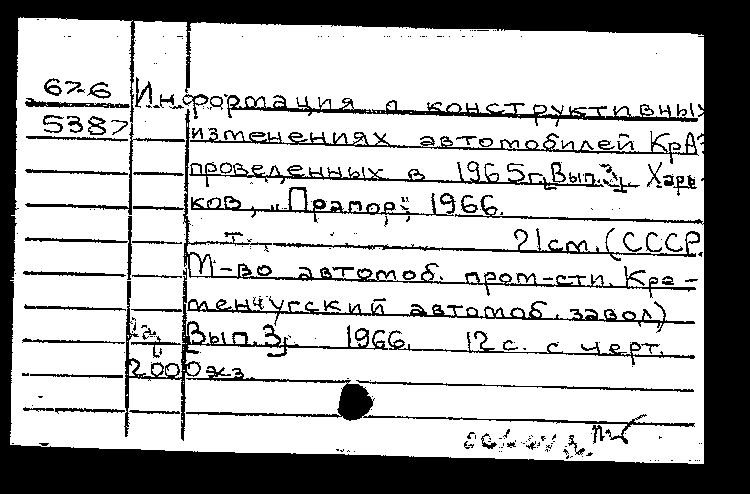 626
Информация о конструктивных
5387
изменениях автомобилей КрАЗ
проведенных в 1965г. Вып.3. Харь-
ков, "Прапор", 1966.
т. 21см. (СССР.
М-во автомоб. пром-сти. Кре-
менчугский автомоб. завод)
Вып.3. 1966. 12с. с черт.
2000экз.